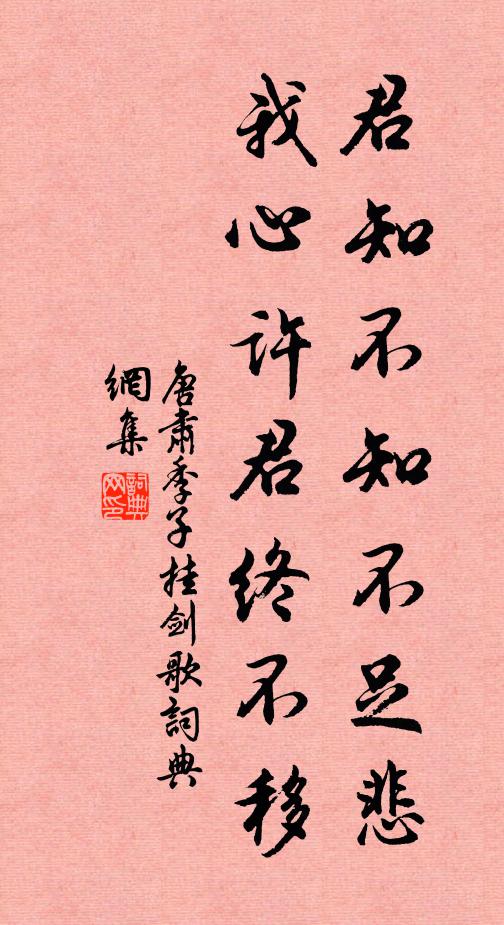 君知不知不足悲
我心許君終不移
唐肅季子挂劍歌詞典
網集
詞典
网印